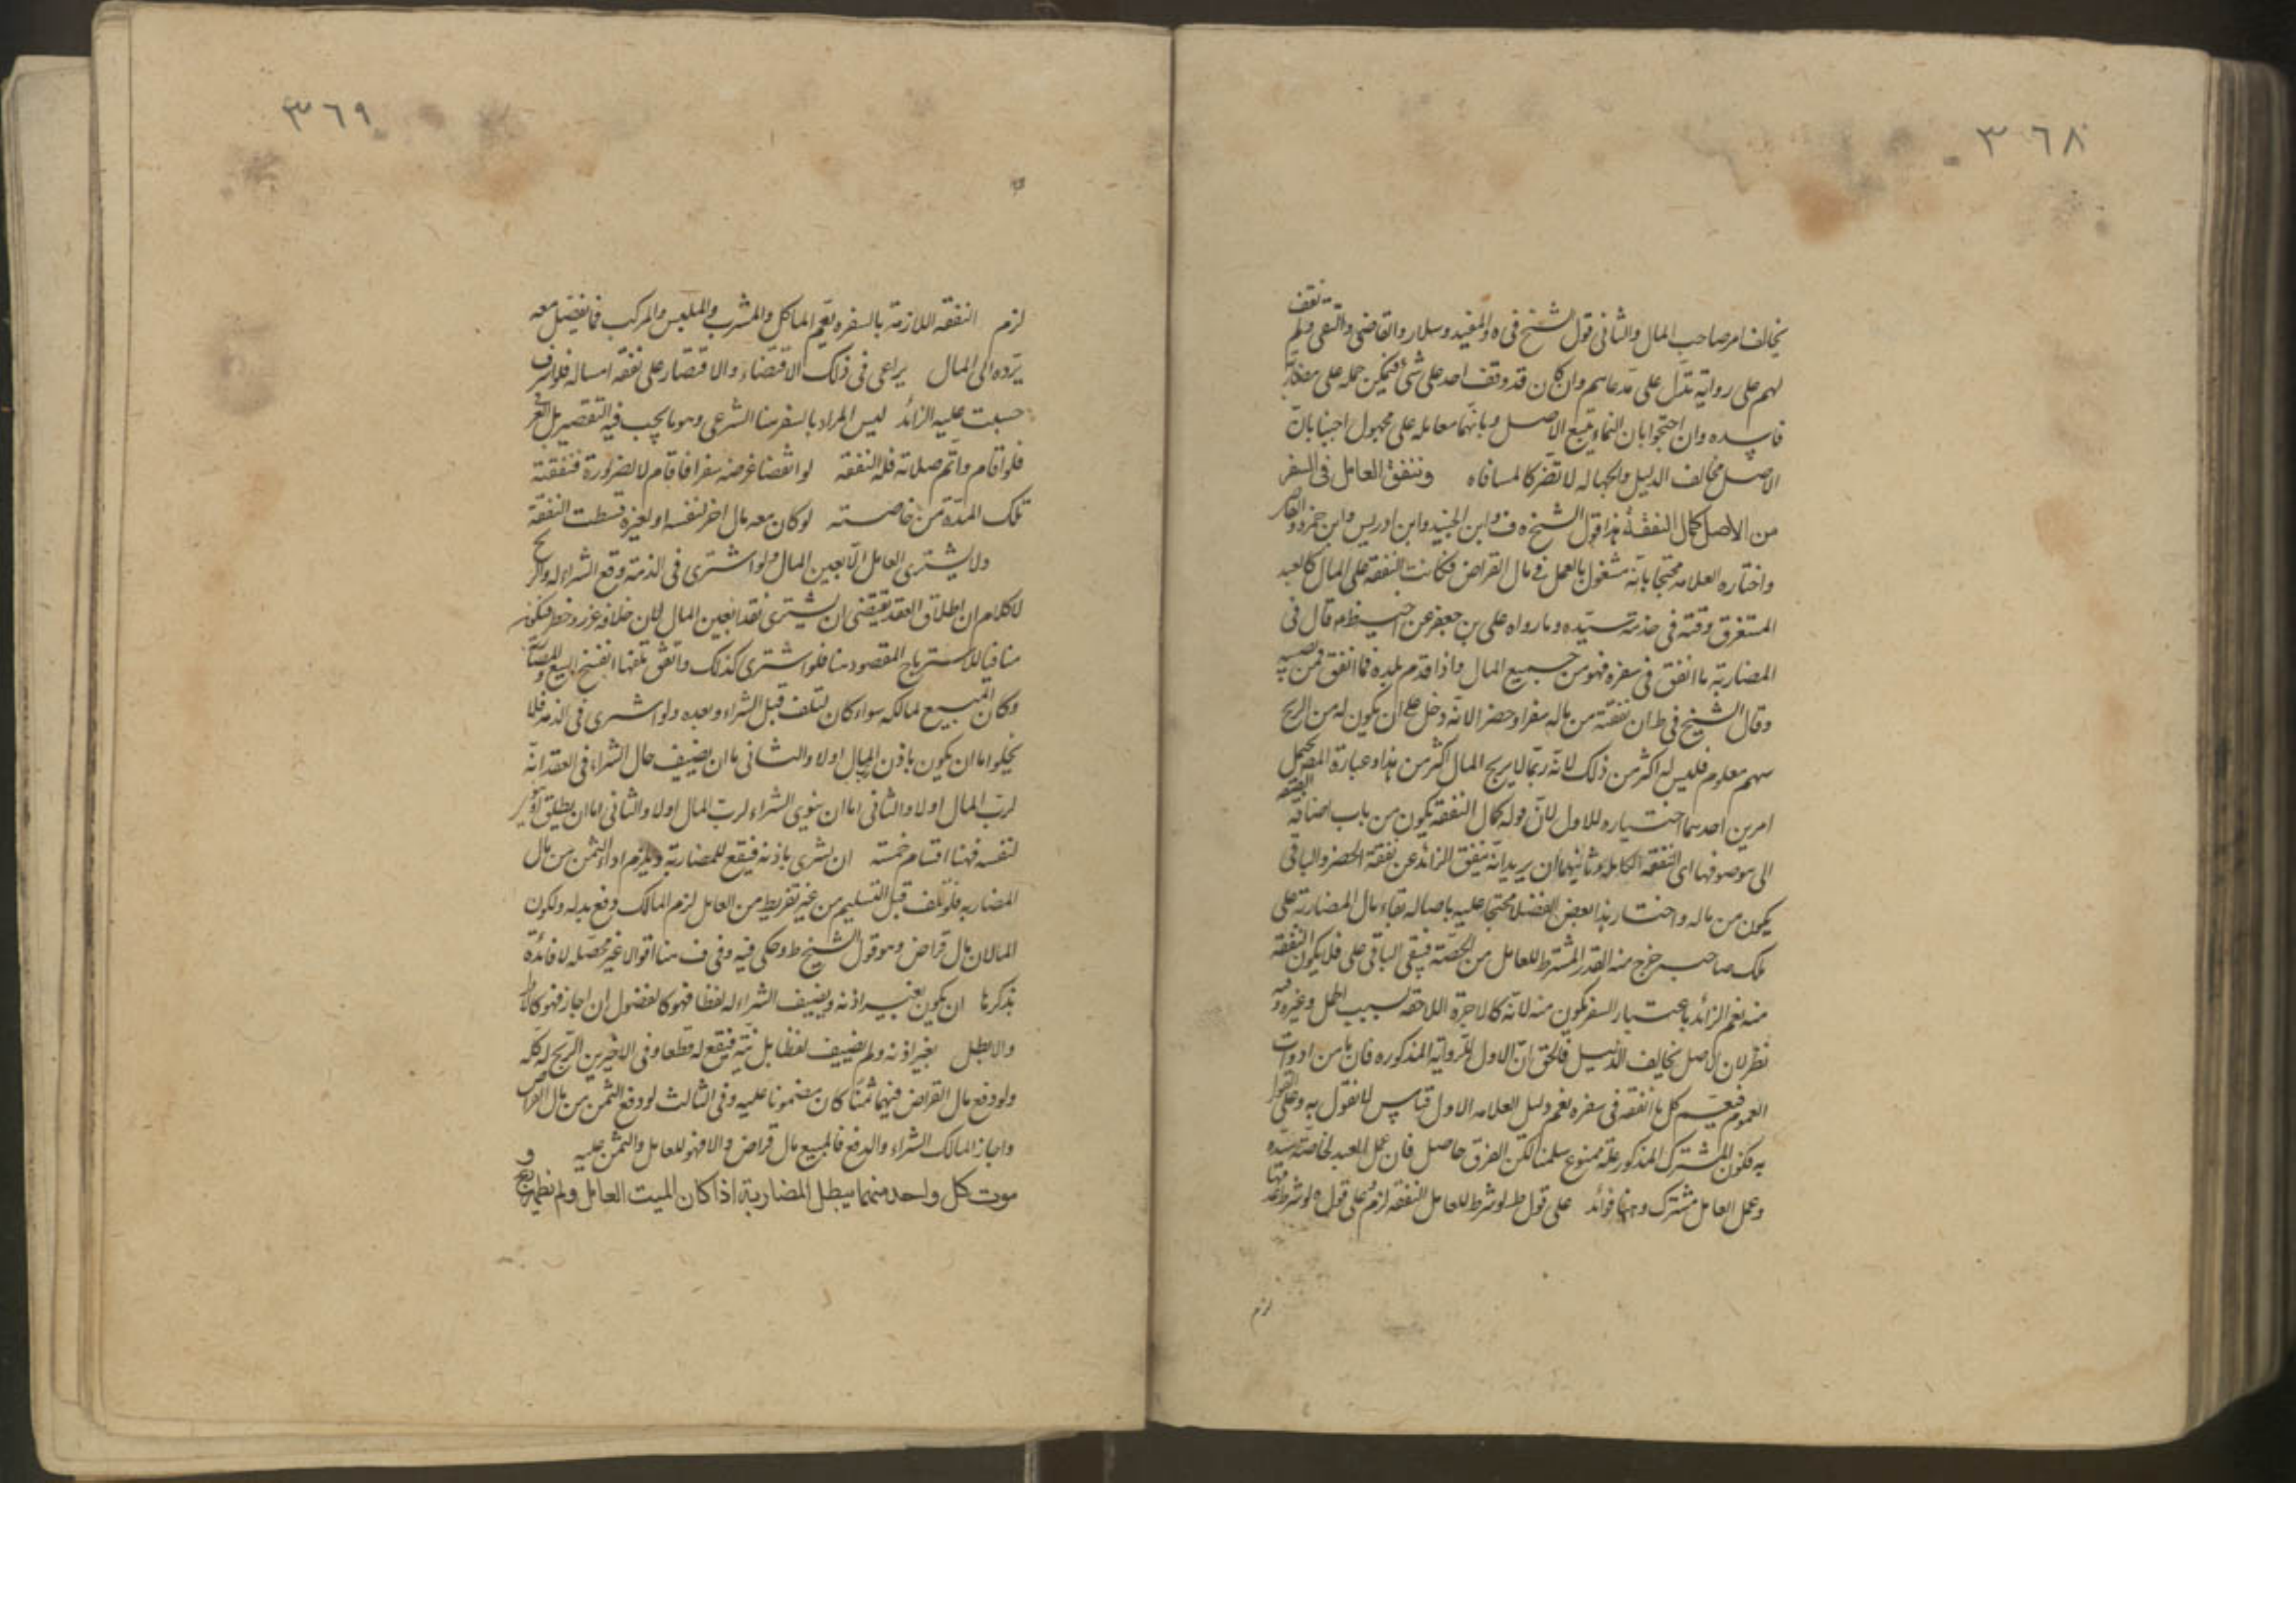 ٣٦٨
يخالف امر صاحب المال والثانى قول الشيخ فى ه والمفيد وسلار والقاضى والتقى ولم نقف
لهم على رواية تدل على مدعاهم وان كان قد وقف احد على شئ فيمكن حمله على مضاربة
فاسده وان احتجوا بان النماء يتبع الاصل وبانها معامله على مجهول اجبنا بان
الاصل مخالف الدليل والجهاله لا تضر كالمساقاه وينفق العامل فى السفر
من الاصل كمال النفقة هذا قول الشيخ ه ف وابن الجنيد وابن ادريس وابن حمزه
واختاره العلامه محتجا بانه مشغول بالعمل فى مال القراض فكانت النفقة على المال كالعبد
المستغرق وقته فى خدمة سيده وما رواه على بن جعفر عن اخيه ظم قال فى
المضاربة ما انفق فى سفره فهو من جميع المال واذا قدم بلده فما انفق فمن نصيبه
وقال الشيخ فى ط ان نفقته من ماله سفرا وحضرا لانه دخل على ان يكون له من الربح
سهم معلوم فليس له اكثر من ذلك لانه ربما لا يربح المال اكثر من هذا وعبارة المص يحتمل
امرين احدهما اختياره للاول لان قوله كمال النفقة يكون من باب اضافة الصفه
الى موصوفها اى النفقه الكامله وثانيهما ان يريد انه ينفق الزائد عن نفقة الحضر والباقى
يكون من ماله واختار هذا بعض الفضلا محتجا عليه باصاله بقاء مال المضاربة على
ملك صاحبه خرج منه القدر المشترط للعامل من الحصة فيبقى الباقى على فلا يكون النفقة
منه نعم الزائد باعتبار السفر يكون منه لانه كالاجرة اللاحقه بسبب الحمل وغيره وفيه
نظر لان الاصل يخالف للدليل فالحق ان الاول للرواية المذكوره فان ما من ادوات
العموم فيعم كل ما انفقه فى سفره نعم دليل العلامه الاول قياس لا نقول به وعلى القول
به فكون المشترك المذكور علة ممنوع سلمنا لكن الفرق حاصل فان عمل العبد لخاصة سيده
وعمل العامل مشترك وهنا فوائد على قول ط لو شرط للعامل النفقه لزم وعلى قول ه لو شرط عدمها
لزم
٣٦٩
لزم النفقه اللازمة بالسفره تعم الماكل والمشرب والملبس والمركب فما يفضل معه
يرده الى المال يراعى فى ذلك الاقتضاء والاقتصار على نفقه امساله فلو اسرف
حسبت عليه الزائد ليس المراد بالسفر هنا الشرعى وهو ما يجب فيه التقصير بل العرفى
فلو اقام واتم صلاته فله النفقه لو انقضا غرضه سفرا فاقام لا لضرورة فنفقته
تلك المدة من خاصته لو كان معه مال اخر لنفسه او لغيره قسطت النفقة
ولا يشترى العامل الا بعين المال ولو اشترى فى الذمة وقع الشراء له والربح
لا كلام ان اطلاق العقد يقتضى ان يشترى نقدا بعين المال لان خلافه غرر وخطر فيكون
منافيا للاسترباح المقصود هنا فلو اشترى كذلك واتفق تلفها انفسخ البيع والمضاربة
وكان المبيع لمالكه سواء كان لتلف قبل الشراء وبعده ولو اشترى فى الذمه فلا
يخلو اما ان يكون باذن المال اولا والثانى ما ان يضيف حال الشراء فى العقد انه
لرب المال اولا والثانى اما ان ينوى الشراء لرب المال اولا والثانى اما ان يطلق او يشير
لنفسه فهنا اقسام خمسة ان يشرى باذنه فيقع للمضاربة ويلزم اداء الثمن من مال
المضاربه فلو تلف قبل التسليم من غير تفريط من العامل لزم المالك دفع بدله ولكون
المالان مال قراض وهو قول الشيخ ط وحكى فيه وفى ف هنا اقوالا غير محصله لا فائدة
بذكرها ان يكون بغير اذنه ويضيف الشراء له لفظا فهو كالفضول ان اجاز فهو كالاول
والا بطل بغير اذنه ولم يضيف لفظا بل نية فيقع له قطعا وفى الاخيرين الربح له كله
ولو دفع مال القراض فيهما ثمنا كان مضمونا عليه وفى الثالث لو دفع الثمن من مال القراض
واجاز المالك الشراء والدفع فالمبيع مال قراض والا فهو للعامل والثمن عليه و
موت كل واحد منهما يبطل المضاربة اذا كان الميت العامل ولم يظهر ربح